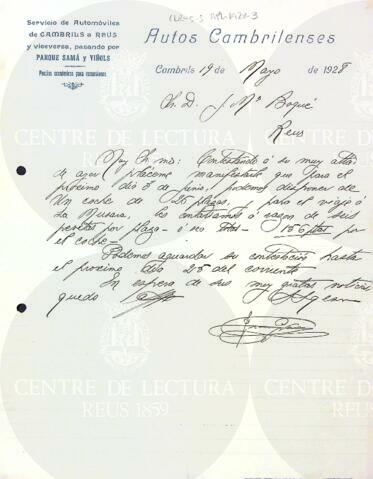 Servicio de Automóviles
de CAMBRILS a REUS
y viceversa, pasando por
PARQUE SAMÁ y VIÑOLS
Precios económicos para excursiones
Autos Cambrilenses
Cambrils 19 de Mayo de 1928
J. Mª Boqué
Reus
Muy Sr. mio: Contestando á su muy atta
de ayer, pláceme manifestarle que para el
próximo dia 3 de Junio, podemos disponer de
Un coche de 26 plazas, para el viaje á
La Mussara, lo contratamos á razon de seis
pesetas por plaza - ó sea ptas - 156 ptas por
el coche -
Podemos aguardar su contestación hasta
el proximo dia 25 del corriente
En espera de sus muy gratas noticias
quedo
CENTRE DE LECTURA
REUS 1859